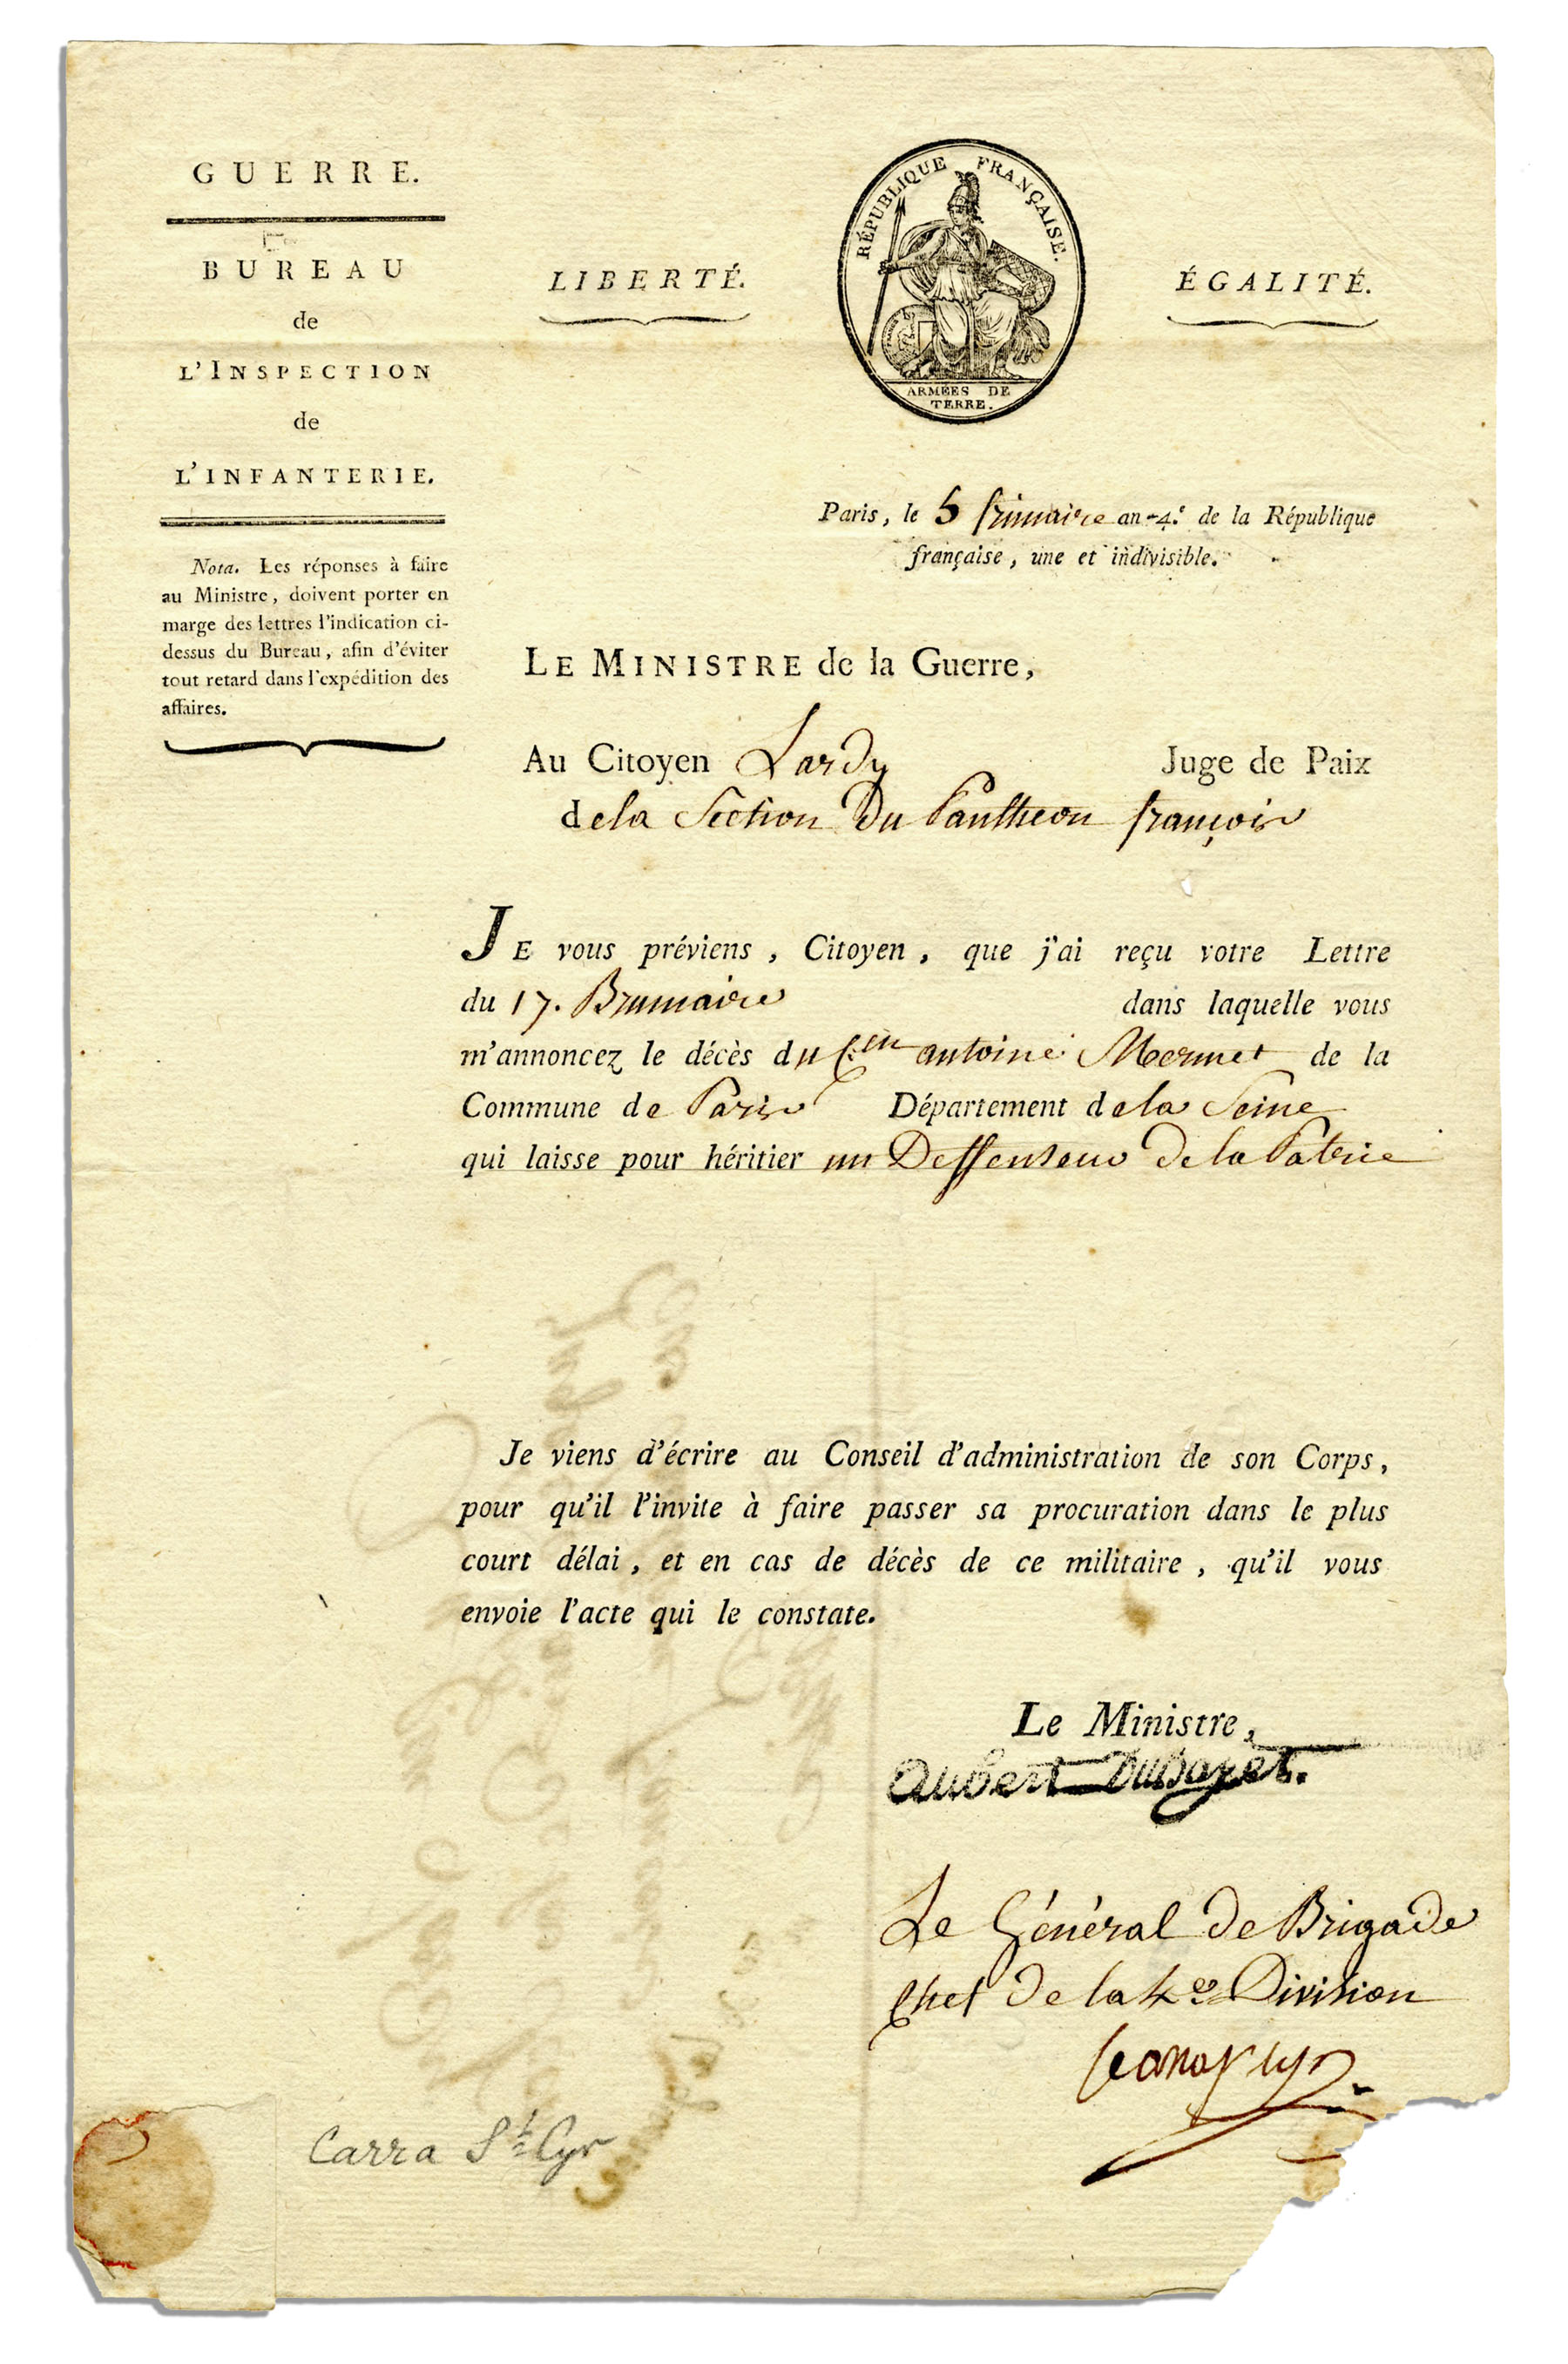 GUERRE.
BUREAU
de
L'INSPECTION
de
L'INFANTERIE.
Nota. Les réponses à faire
au Ministre, doivent porter en
marge des lettres l'indication ci-
dessus du Bureau, afin d'éviter
tout retard dans l'expédition des
affaires.
LIBERTÉ.
RÉPUBLIQUE FRANÇAISE.
ARMÉES DE
TERRE.
ÉGALITÉ.
Paris, le 5 frimaire an 4.e de la République
française, une et indivisible.
LE MINISTRE de la Guerre,
Au Citoyen Lardy Juge de Paix
de la Section du Pantheon françois
JE vous préviens, Citoyen, que j'ai reçu votre Lettre
du 17. Brumaire dans laquelle vous
m'annoncez le décès du Cen antoine Mermet de la
Commune de Paris Département de la Seine
qui laisse pour héritier un Deffenseur de la Patrie
Je viens d'écrire au Conseil d'administration de son Corps,
pour qu'il l'invite à faire passer sa procuration dans le plus
court délai, et en cas de décès de ce militaire, qu'il vous
envoie l'acte qui le constate.
Le Ministre,
Aubert Dubayet.
Le Général de Brigade
Chef de la 4e Division
Carra St Cyr